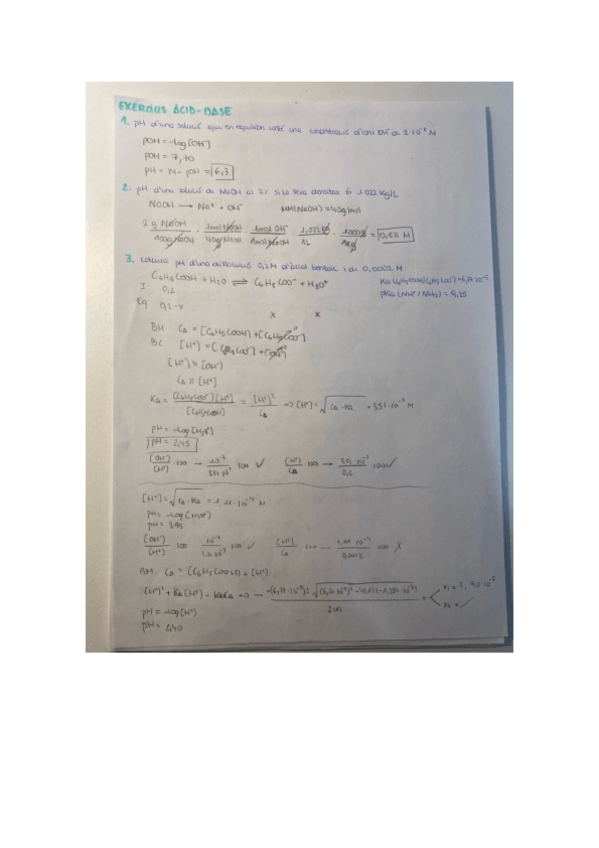 EXERCICIS ÀCID-BASE
1. pH d'una solució que en equilibri conté una concentració d'ions OH⁻ de 2·10⁻⁸ M
pOH = -log[OH⁻]
pOH = 7,70
pH = 14 - pOH = 6,3
2. pH d'una solució de NaOH al 2% si la seva densitat és 1,022 Kg/L
NaOH → Na⁺ + OH⁻ MM(NaOH) = 40g/mol
2 g NaOH / 100g NaOH · 1mol NaOH / 40g NaOH · 1mol OH⁻ / 1mol NaOH · 1,022 Kg / 1L · 1000g / 1Kg = 0,511 M
3. Calcula pH d'una dissolució 0,2M d'àcid benzoic i de 0,0002 M
C₆H₅COOH + H₂O ⇌ C₆H₅COO⁻ + H₃O⁺
I 0,2
Eq 0,2-x x x
pKa (NH₄⁺/NH₃) = 9,25
BM Ca = [C₆H₅COOH] + [C₆H₅COO⁻]
BC [H⁺] = [C₆H₅COO⁻] + [OH⁻]
[H⁺] » [OH⁻]
Ca » [H⁺]
Ka = [C₆H₅COO⁻][H⁺] / [C₆H₅COOH] = [H⁺]² / Ca → [H⁺] = √Ca·Ka = 3,51·10⁻³ M
pH = -log[H₃O⁺]
pH = 2,45
[OH⁻]/[H⁺] · 100 → · 100 ✓ [H⁺]/Ca · 100 → / 0,2 · 100 ✓
[H⁺] = √Ca·Ka = 1,11·10⁻⁴ M
pH = -log[H₃O⁺]
pH = 3,95
[OH⁻]/[H⁺] · 100 · 100 ✓ [H⁺]/Ca · 100 / 0,0002 · 100 X
BM: Ca = [C₆H₅COOH] + [H⁺]
[H⁺]² + Ka[H⁺] - KaCa → →
pH = -log[H⁺]
pH =